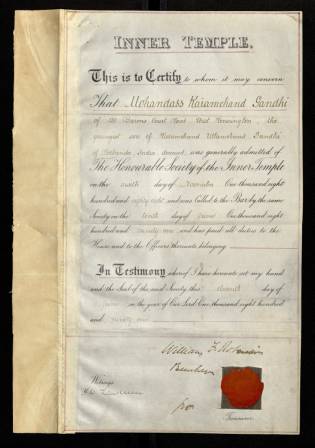 INNER TEMPLE.
This is to Certify to whom it may concern
That Mohandass Karamchand Gandhi
of 20 Barons Court Road West Kensington, the
youngest son of Karamchand Uttamchand Gandhi
of Porbandar, India, deceased, was generally admitted of
The Honourable Society of the Inner Temple
on the sixth day of November One thousand eight
hundred and eighty eight and was Called to the Bar by the same
Society on the tenth day of June One thousand eight
hundred and ninety one and has paid all duties to the
House and to the Officers thereunto belonging
In Testimony whereof I have hereunto set my hand
and the Seal of the said Society this day of
in the year of our Lord One thousand eight hundred
and ninety one
William F. Robinson
Bencher
Witness
for
Treasurer